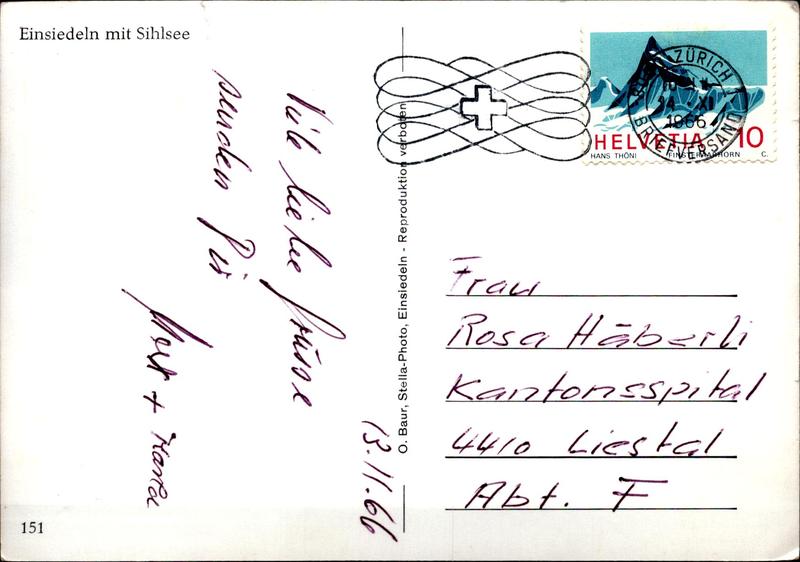 Einsiedeln mit Sihlsee
13.11.66
Viele liebe Grüsse
senden Dir
+
151
O. Baur, Stella-Photo, Einsiedeln - Reproduktion verboten
ZÜRICH 1
14. XI
1966
BRIEFVERSAND
HELVETIA 10
HANS THÖNI FINSTERAARHORN C.
Frau
Rosa Häberli
Kantonsspital
4410 Liestal
Abt. F